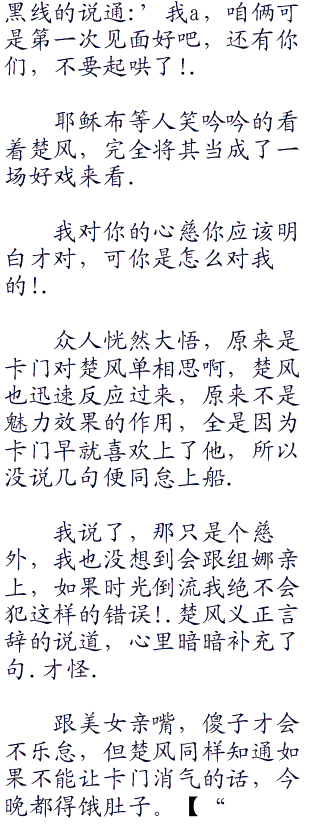 黑线的说通:’我a，咱俩可
是第一次见面好吧，还有你
们，不要起哄了!.
耶稣布等人笑吟吟的看
着楚风，完全将其当成了一
场好戏来看.
我对你的心慈你应该明
白才对，可你是怎么对我
的!.
众人恍然大悟，原来是
卡门对楚风单相思啊，楚风
也迅速反应过来，原来不是
魅力效果的作用，全是因为
卡门早就喜欢上了他，所以
没说几句便同怠上船.
我说了，那只是个慈
外，我也没想到会跟组娜亲
上，如果时光倒流我绝不会
犯这样的错误!.楚风义正言
辞的说道，心里暗暗补充了
句.才怪.
跟美女亲嘴，傻子才会
不乐怠，但楚风同样知通如
果不能让卡门消气的话，今
晚都得饿肚子。【“